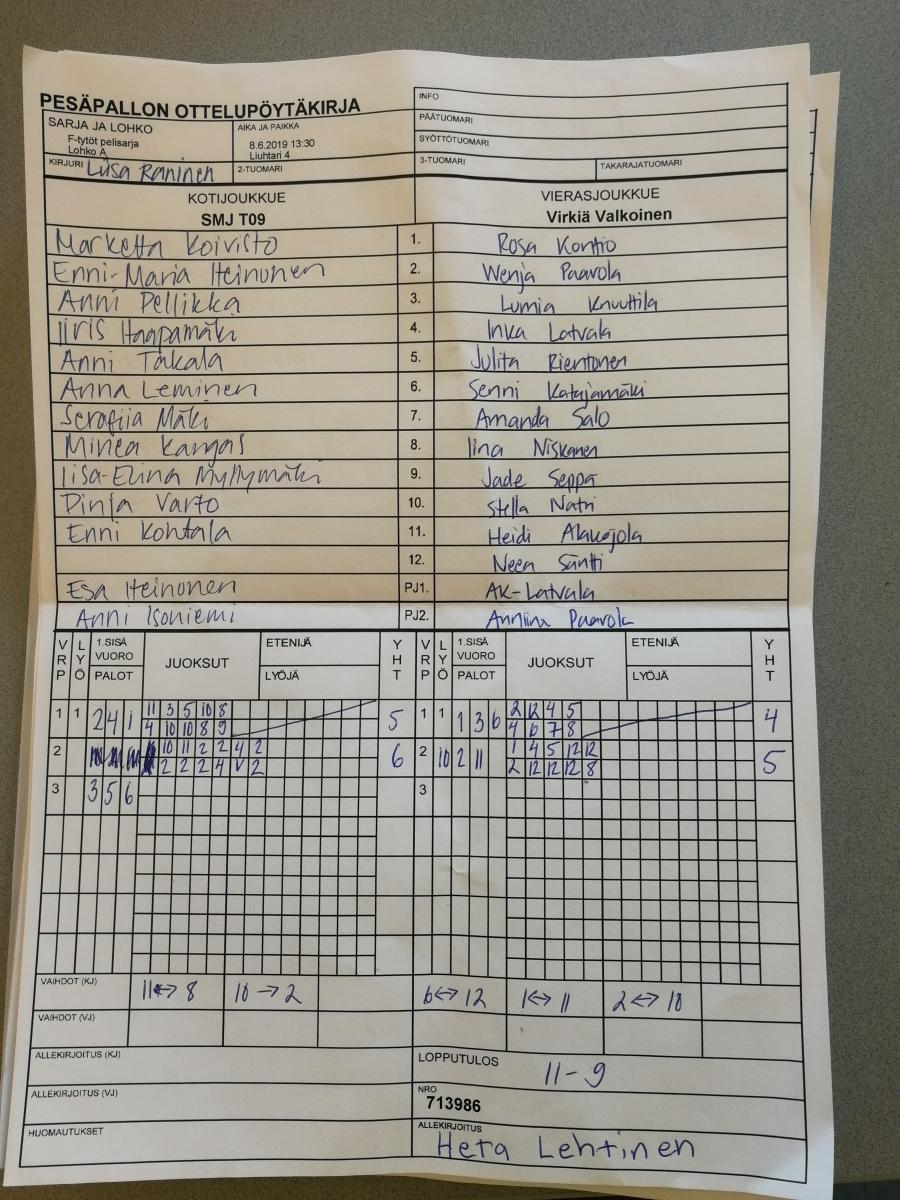 PESÄPALLON OTTELUPÖYTÄKIRJA
INFO
PÄÄTUOMARI
SYÖTTÖTUOMARI
3-TUOMARI TAKARAJATUOMARI
SARJA JA LOHKO
F-tytöt pelisarja
Lohko A
AIKA JA PAIKKA
8.6.2019 13:30
Liuhtari 4
KIRJURI Liisa Raninen
2-TUOMARI
KOTIJOUKKUE VIERASJOUKKUE
SMJ T09 Virkiä Valkoinen
Marketta Koivisto 1. Rosa Kontio
Enni-Maria Heinonen 2. Wenja Paavola
Anni Pellikka 3. Lumia Knuuttila
Iiris Haapamäki 4. Inka Latvala
Anni Takala 5. Julita Rientonen
Anna Leminen 6. Senni Katajamäki
Serafiia Mäki 7. Amanda Salo
Minea Kangas 8. Iina Niskanen
Iisa-Elina Myllymäki 9. Jade Seppä
Pinja Varto 10. Stella Natri
Enni Kohtala 11. Heidi Alakojola
12. Neea Säntti
Esa Heinonen PJ1. AK-Latvala
Anni Isoniemi PJ2. Anniina Paavola
VRP LYÖ 1.SISÄ VUORO PALOT JUOKSUT ETENIJÄ LYÖJÄ YHT VRP LYÖ 1.SISÄ VUORO PALOT JUOKSUT ETENIJÄ LYÖJÄ YHT
1 1 2 4 1 11 3 5 10 8 5 1 1 1 3 6 2 12 4 5 4
4 10 10 8 9 4 6 7 8
2 10 11 2 2 4 2 6 2 10 2 11 1 4 5 12 12 5
2 2 2 4 V 2 2 12 12 12 8
3 3 5 6 3
VAIHDOT (KJ) 11<->8 10->2 6<->12 1<->11 2<->10
VAIHDOT (VJ)
ALLEKIRJOITUS (KJ)
LOPPUTULOS 11-9
ALLEKIRJOITUS (VJ)
NRO
713986
HUOMAUTUKSET
ALLEKIRJOITUS
Heta Lehtinen